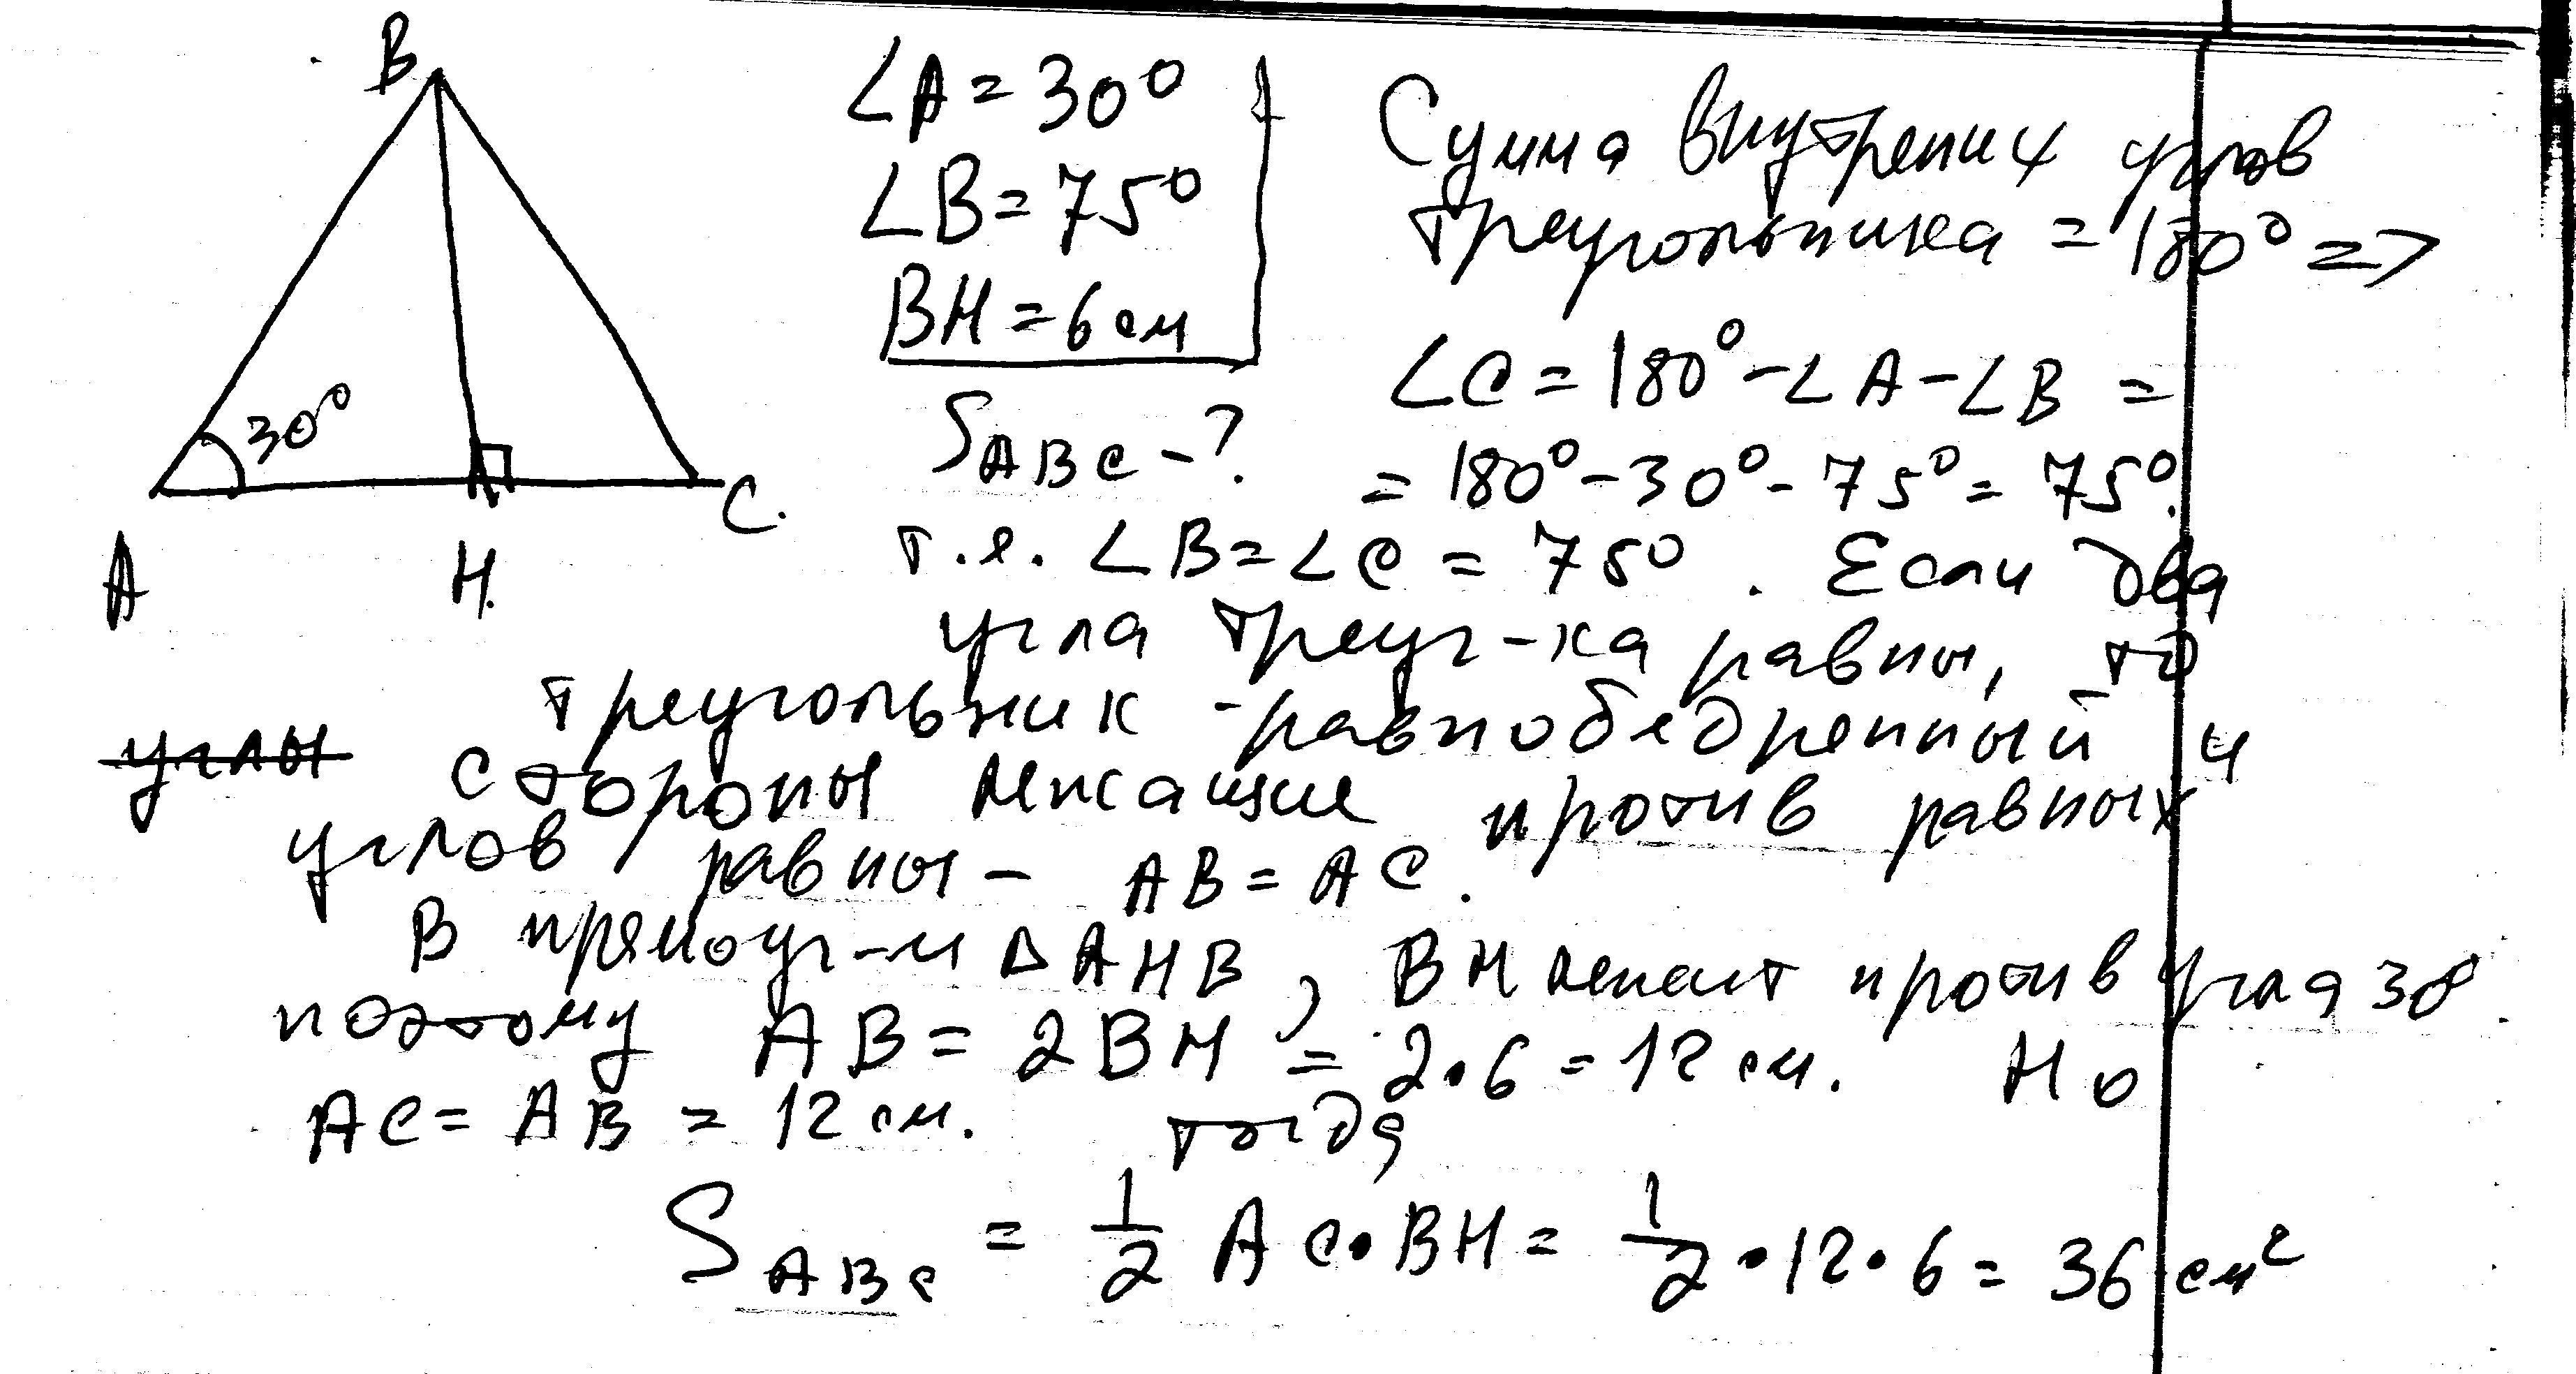 B
30°
A
H.
C.
∠A = 30°
∠B = 75°
BH = 6 см
S ABC - ?
Сумма внутрених углов
треугольника = 180° =>
∠C = 180° - ∠A - ∠B =
= 180° - 30° - 75° = 75°.
т.е. ∠B = ∠C = 75°. Если два
угла треуг-ка равны, то
треугольник - равнобедренный и
углы стороны лежащие против равных
углов равны - AB = AC.
В прямоуг-м ΔAHB, BH лежит против угла 30°
поэтому AB = 2BH = 2•6 = 12 см. Но
AC = AB = 12 см. тогда
S ABC = 1/2 AC•BH = 1/2•12•6 = 36 см²